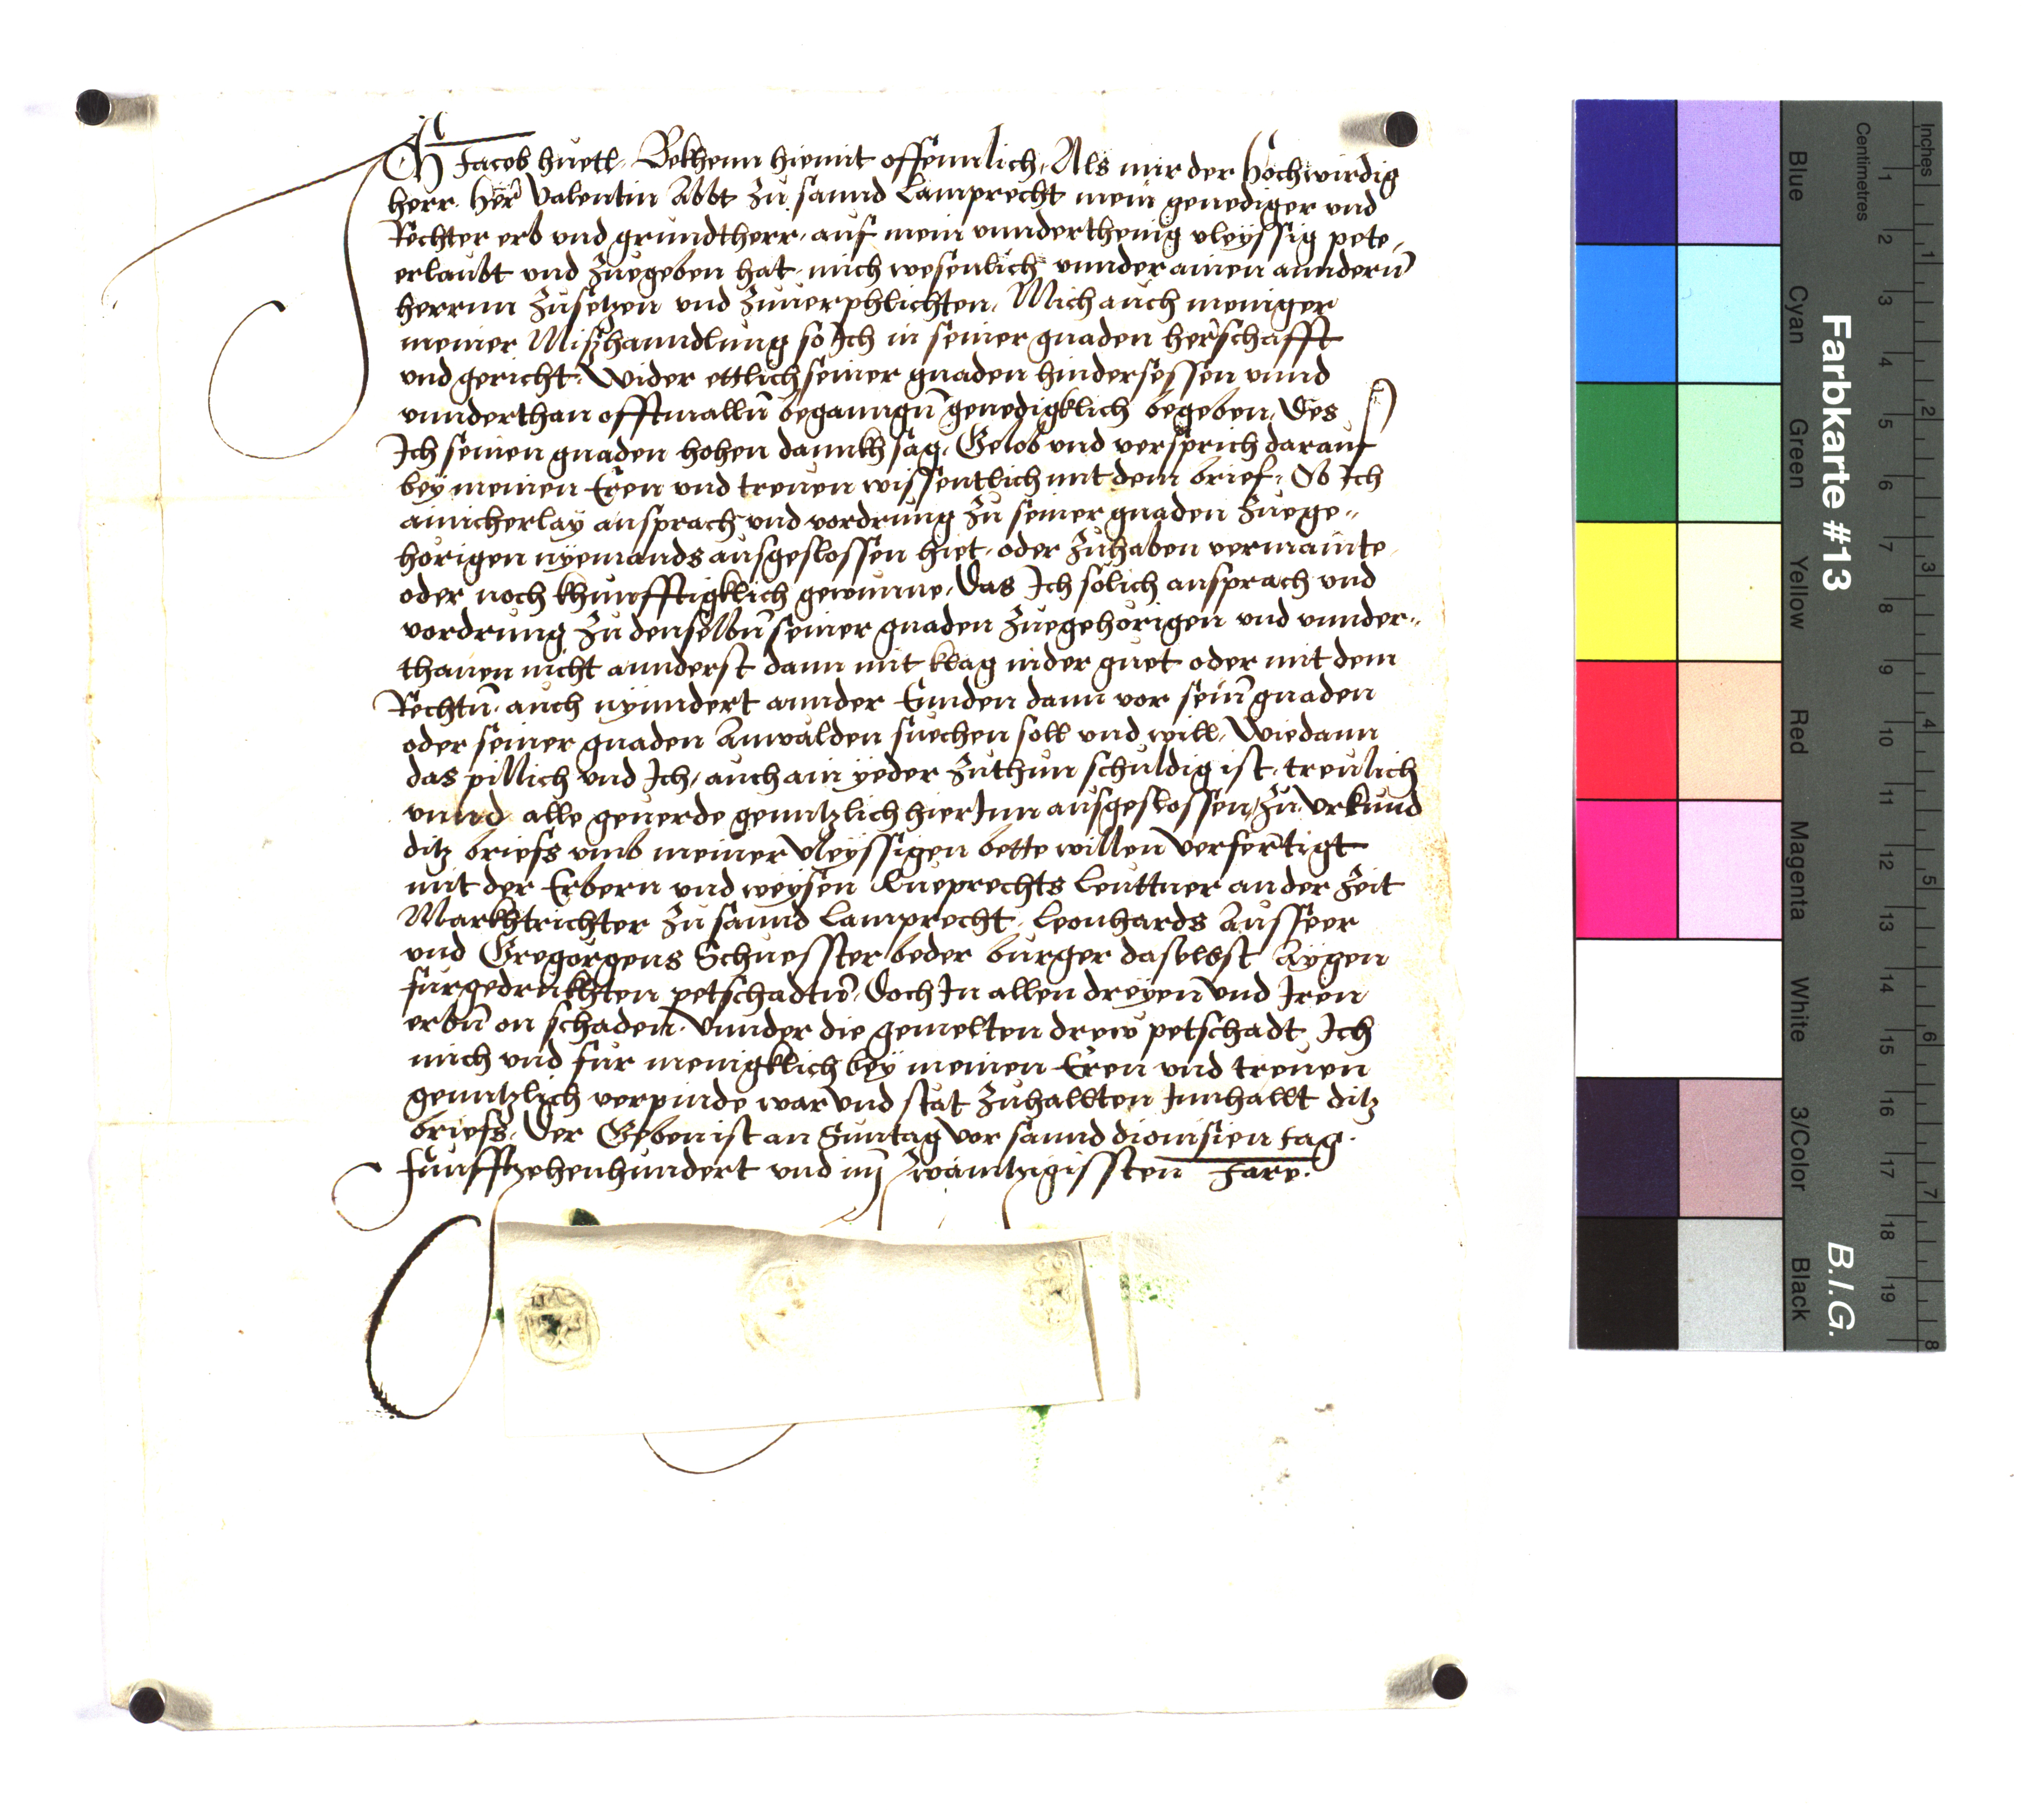 Ich Jacob huetl. Bekhenn hiemit offennlich, Als mir der Hochwirdig
herr. Herr Valentin Abbt zu sannd Lamprecht mein genediger vnd
Rechter erb vnd grundtherr, auf mein vnnderthenig vleyssig pete,
erlaubt vnd zuegeben hat, mich wesenlich vnnder ainen anndern
herrnn zusetzen vnd zuuerphlichten, Mich auch meniger
meiner Mißhanndlung so Ich in seiner gnaden herschafft
vnd gericht, Wider ettlich seiner gnaden hindersessen vnnd
vnnderthan offtmalln beganngn genedigklich begeben, Des
Ich seinen gnaden hohen dannkh sag, Gelob vnd versprich darauf
bey meinen Eren vnd treuen wissentlich mit dem brief, Ob Ich
ainicherlay ansprach vnd vordrung zu seiner gnaden zuege-
horigen nyemands ausgeslossen hiet, oder zuhaben vermainte,
oder noch khunfftigklich gewunne, Das Ich solich ansprach vnd
vordrung zu denselbn seiner gnaden zuegehorigen vnd vnnder-
thanen nicht annderst dann mit klag in der guet oder mit dem
Rechtn, auch nyndert annder Ennden dann vor sein gnaden
oder seiner gnaden Anwalden suechen soll vnd will, Wie dann
das pillich vnd Ich, auch ain yeder zuthun schuldig ist, treulich
vnnd alle geuerde genntzlich hierInn ausgeslossen, Zu Vrkund
ditz briefs vmb meiner vleyssigen bette willen verfertigt
mit der Erbern vnd weysen Rueprechts Leuttner an der zeit
Markhtrichter zu sannd Lamprecht, Leonhards Ausseer
vnd Gregorgens Schuesster beder burger daselbst Aygen
furgedrukhten petschadtn, Doch In allen dreyen vnd Iren
erbn on schaden, Vnnder die gemelten drew petschadt Ich
mich vnd fur menigklich bey meinen Eren vnd treuen
genntzlich verpinde war vnd stat zuhallten Innhallt ditz
briefs, Der Geben ist an Suntag vor sannd dionisien tag.
funfftzehenhundert vnd im zwaintzigissten Jare.
Farbkarte #13
B.I.G.
Inches
1 2 3 4 5 6 7 8
Centimetres
1 2 3 4 5 6 7 8 9 10 11 12 13 14 15 16 17 18 19
Blue
Cyan
Green
Yellow
Red
Magenta
White
3/Color
Black